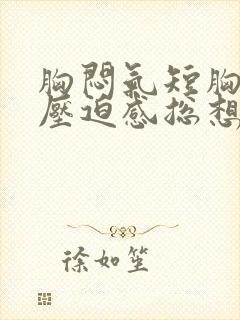 胸悶氣短胸
壓迫感總想
徐如笙